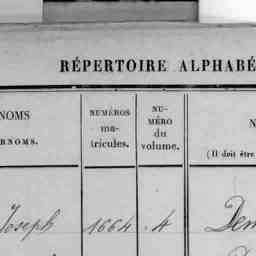 RÉPERTOIRE ALPHABÉ
NOMS
RNOMS.
NUMÉROS
ma-
tricules.
NU-
MÉRO
du
volume.
N
(Il doit être
Joseph 1664 4 Dem